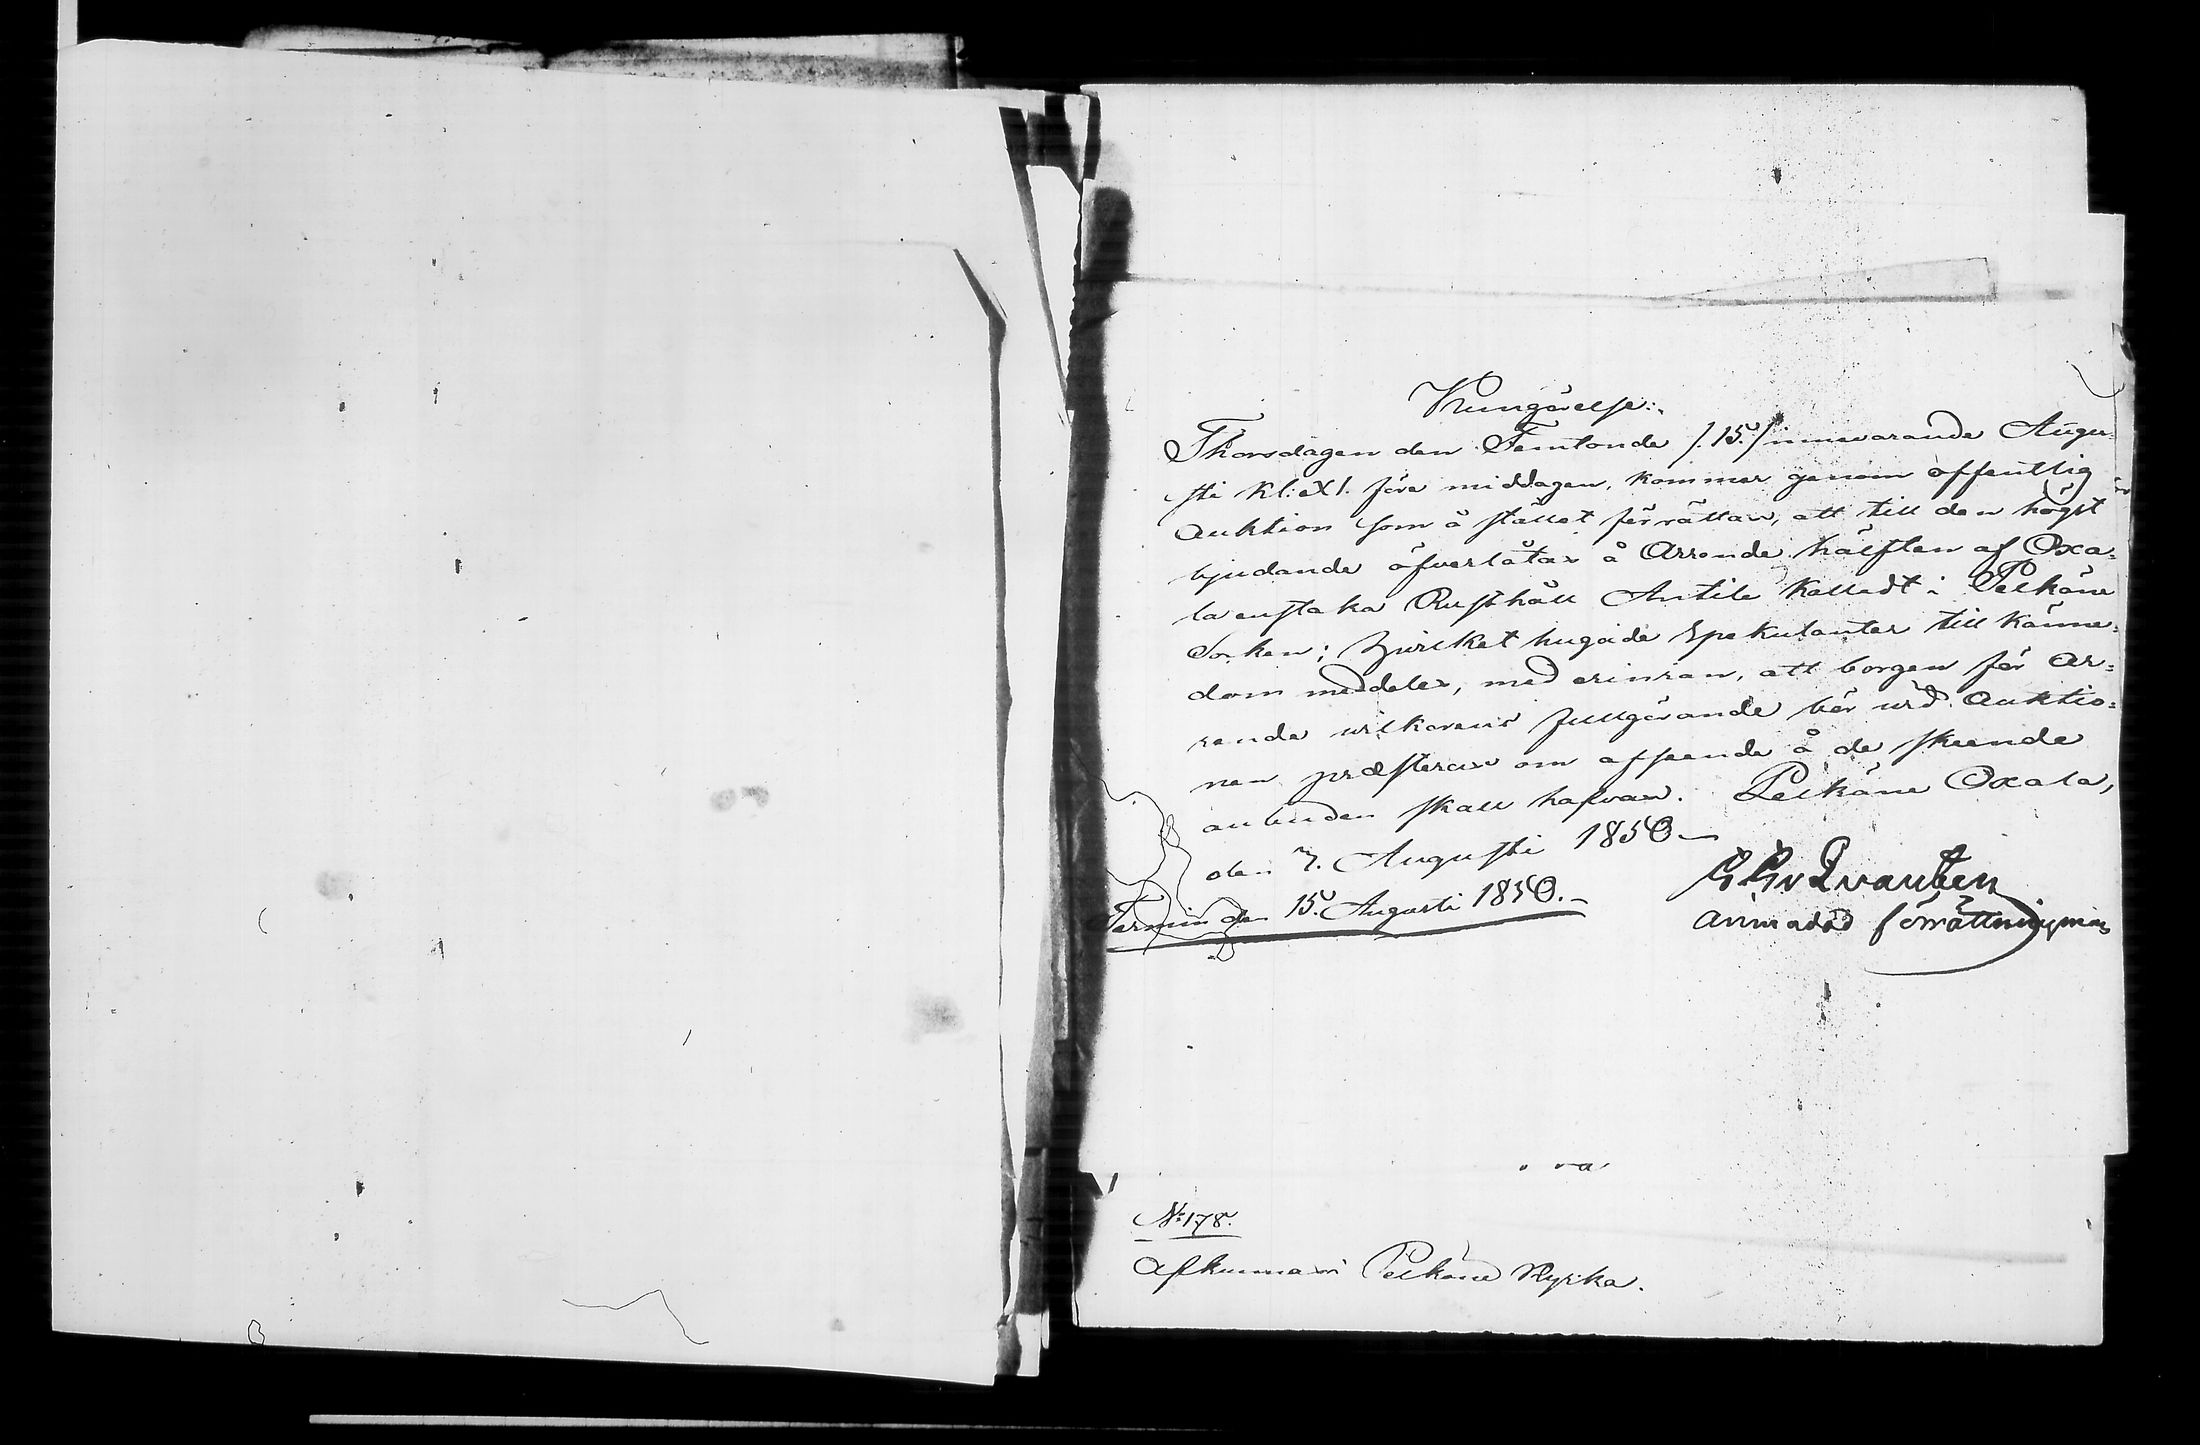 Kungörelse:
Thorsdagen den Femtonde /:15:/ innevarande Augu-
sti kl: XI. före middagen, kommer genom offentlig
Auktion som å stället förrättas, att till den högst
bjudande öfverlåtas å Arrende hälften af Oxa-
la enstaka Rusthåll Antila kalladt i Pelkäne
Socken; hvilket hugade Spekulanter till känne-
dom meddelas, med erinran, att borgen för Ar-
rende wilkorens fullgörande bör wid Auktio-
nen præsteras om afseende å de skeende
anbuden skall hafvas. Pelkäne Oxala,
den 7. Augusti 1850
Termin den 15. Augusti 1850.
anmodad förrättningsman
No 178.
Afkunnas i Pelkäne Kyrka.